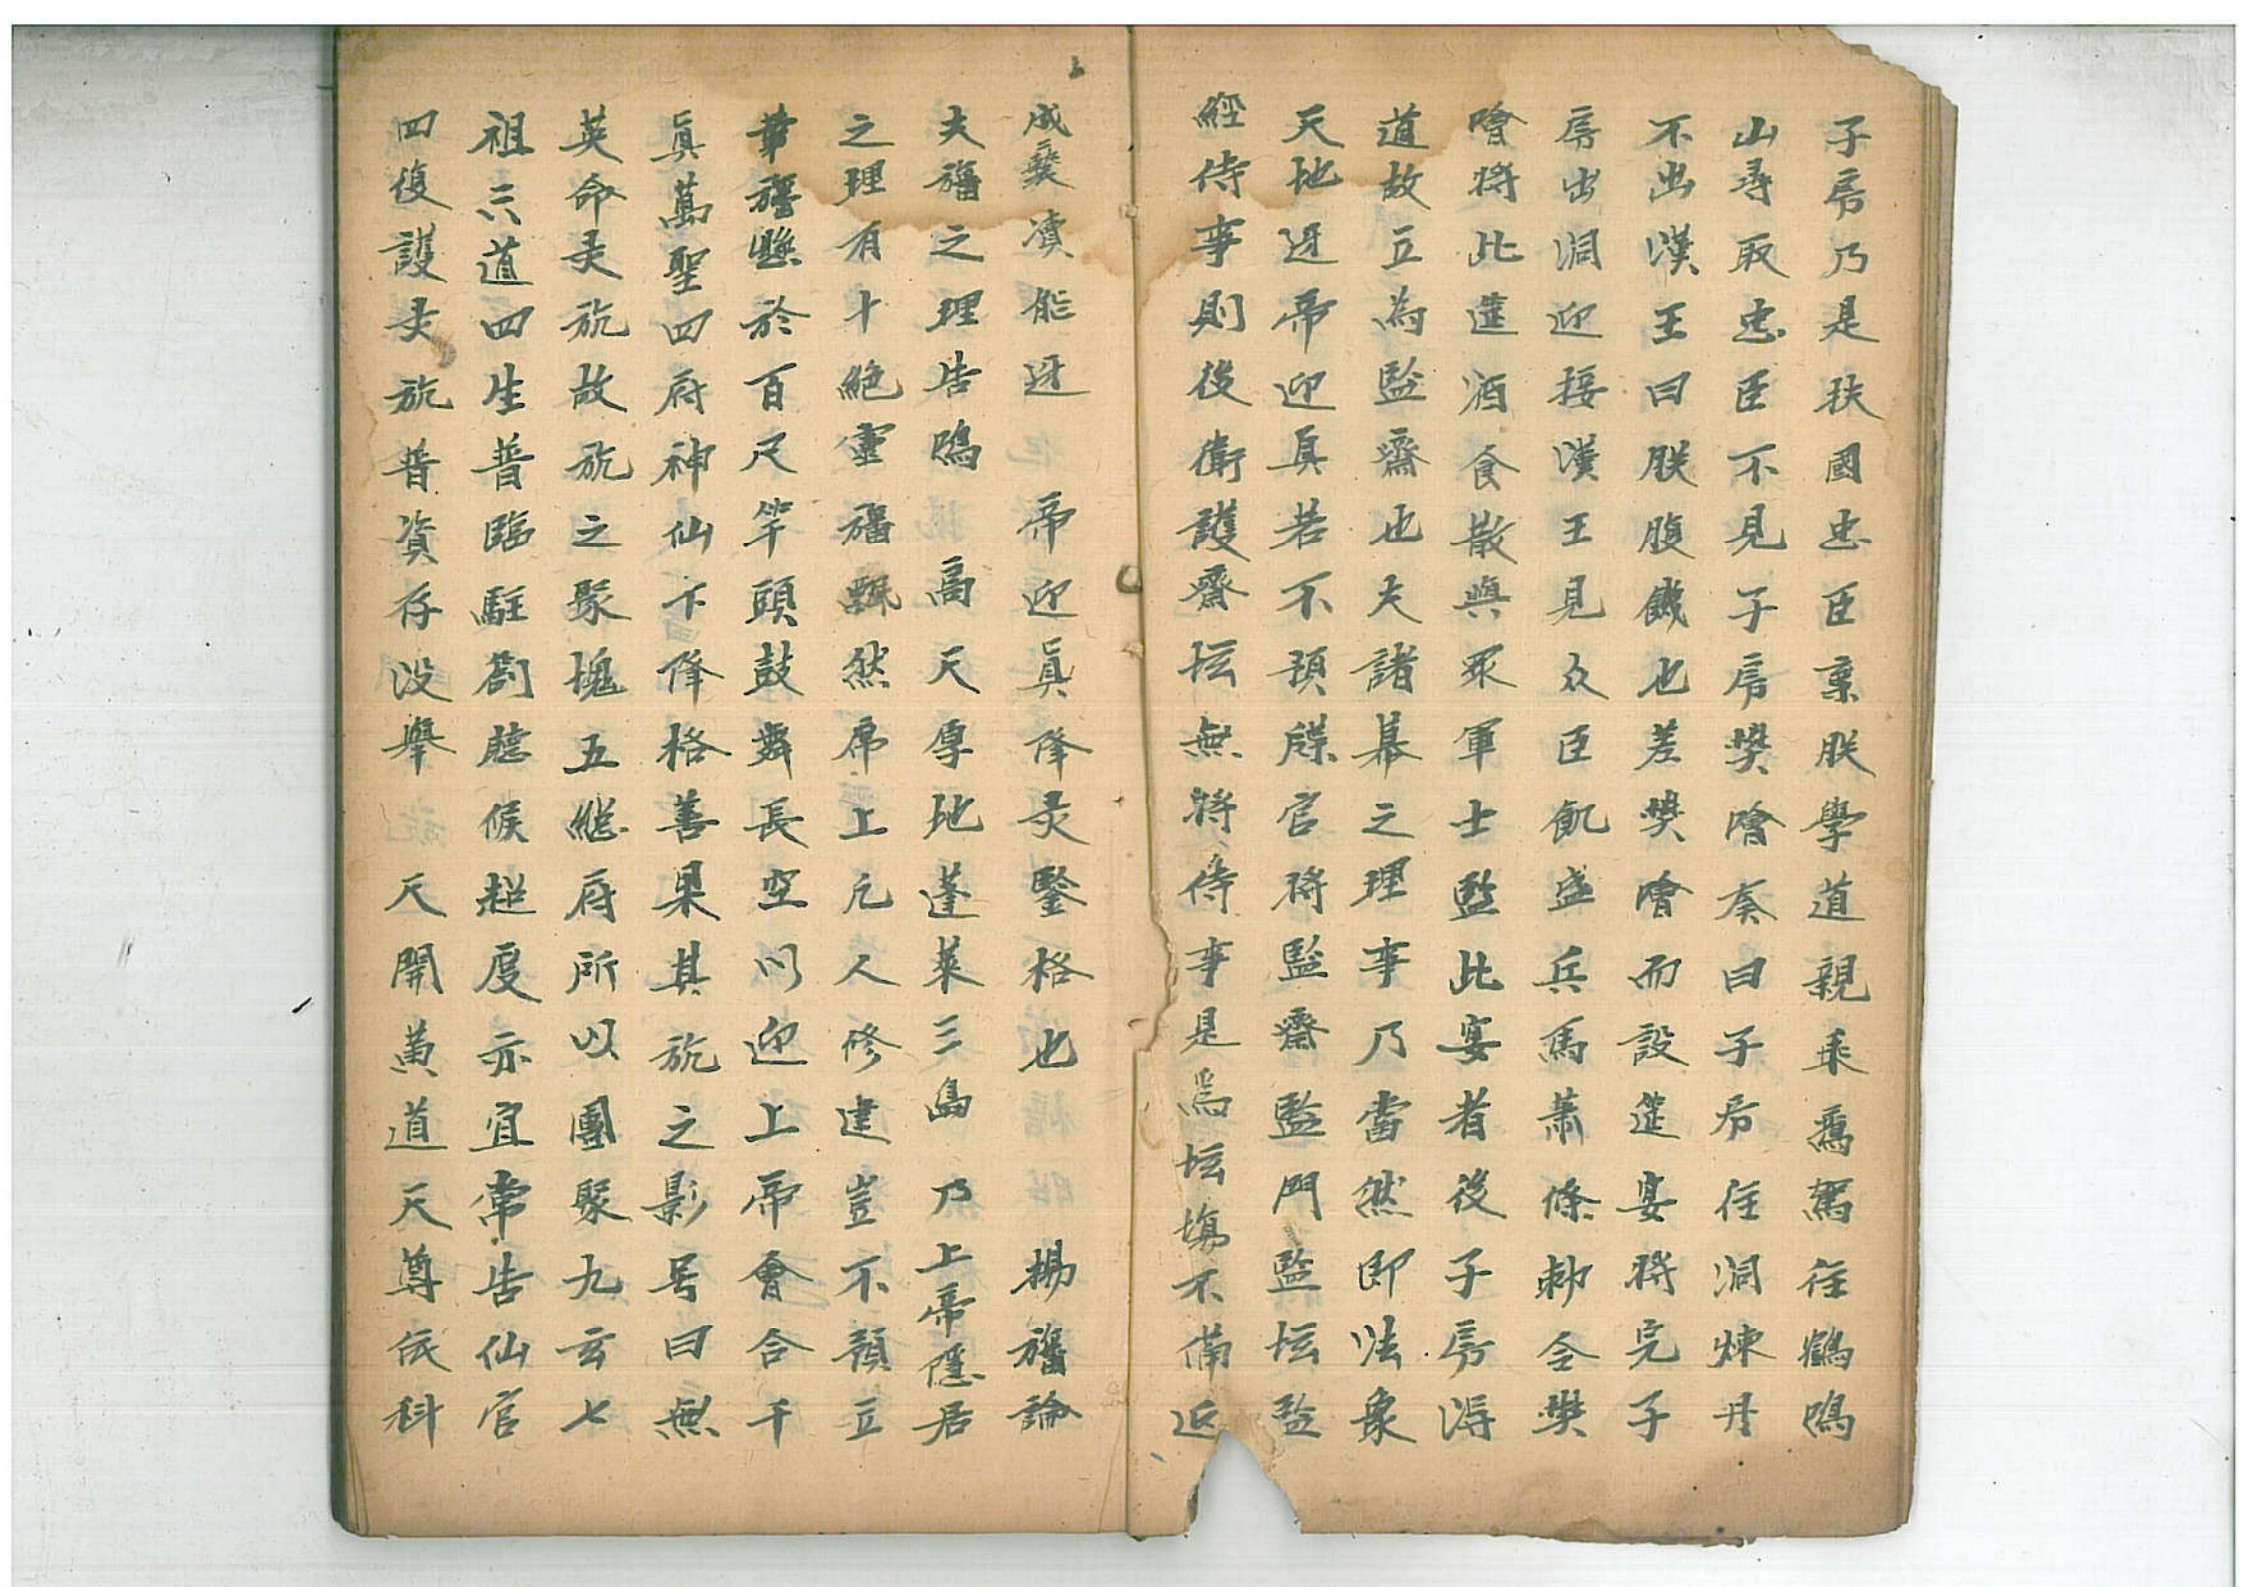 子房乃是扶國忠臣棄朕學道親乘鳳駕往鶴鳴
山尋取忠臣不見子房樊噲奏曰子房住洞煉丹
不出漢王曰朕腹饑也差樊噲而設筵宴將完子
房出洞迎接漢王見众臣飢盛兵馬蕭條勅令樊
噲將此筵酒食散與眾軍士監此宴者後子房得
道故立為監齋也夫諸幕之理事乃當然即法象
天地迓帝迎真若不預牒官將監齋監門監坛監
經侍事則後衛護齋坛無將侍事是為坛塲不備返
成褻瀆能迓 帝迎眞降灵鑒格也 揚旛論
夫旛之理告鳴 高天厚地蓬萊三島 乃上帝隱居
之理有十絕靈旛飄然席上凢人修建豈不預立
華旛懸於百尺竿頭鼓舞長空以迎上帝會合千
眞萬聖四府神仙下降格善果其旐之影号曰無
英命灵旐故旐之聚塊五總府所以團聚九玄七
祖六道四生普臨駐劄聽候超度亦宜常告仙官
四復護灵旐普資存没舉 天開萬道天尊依科